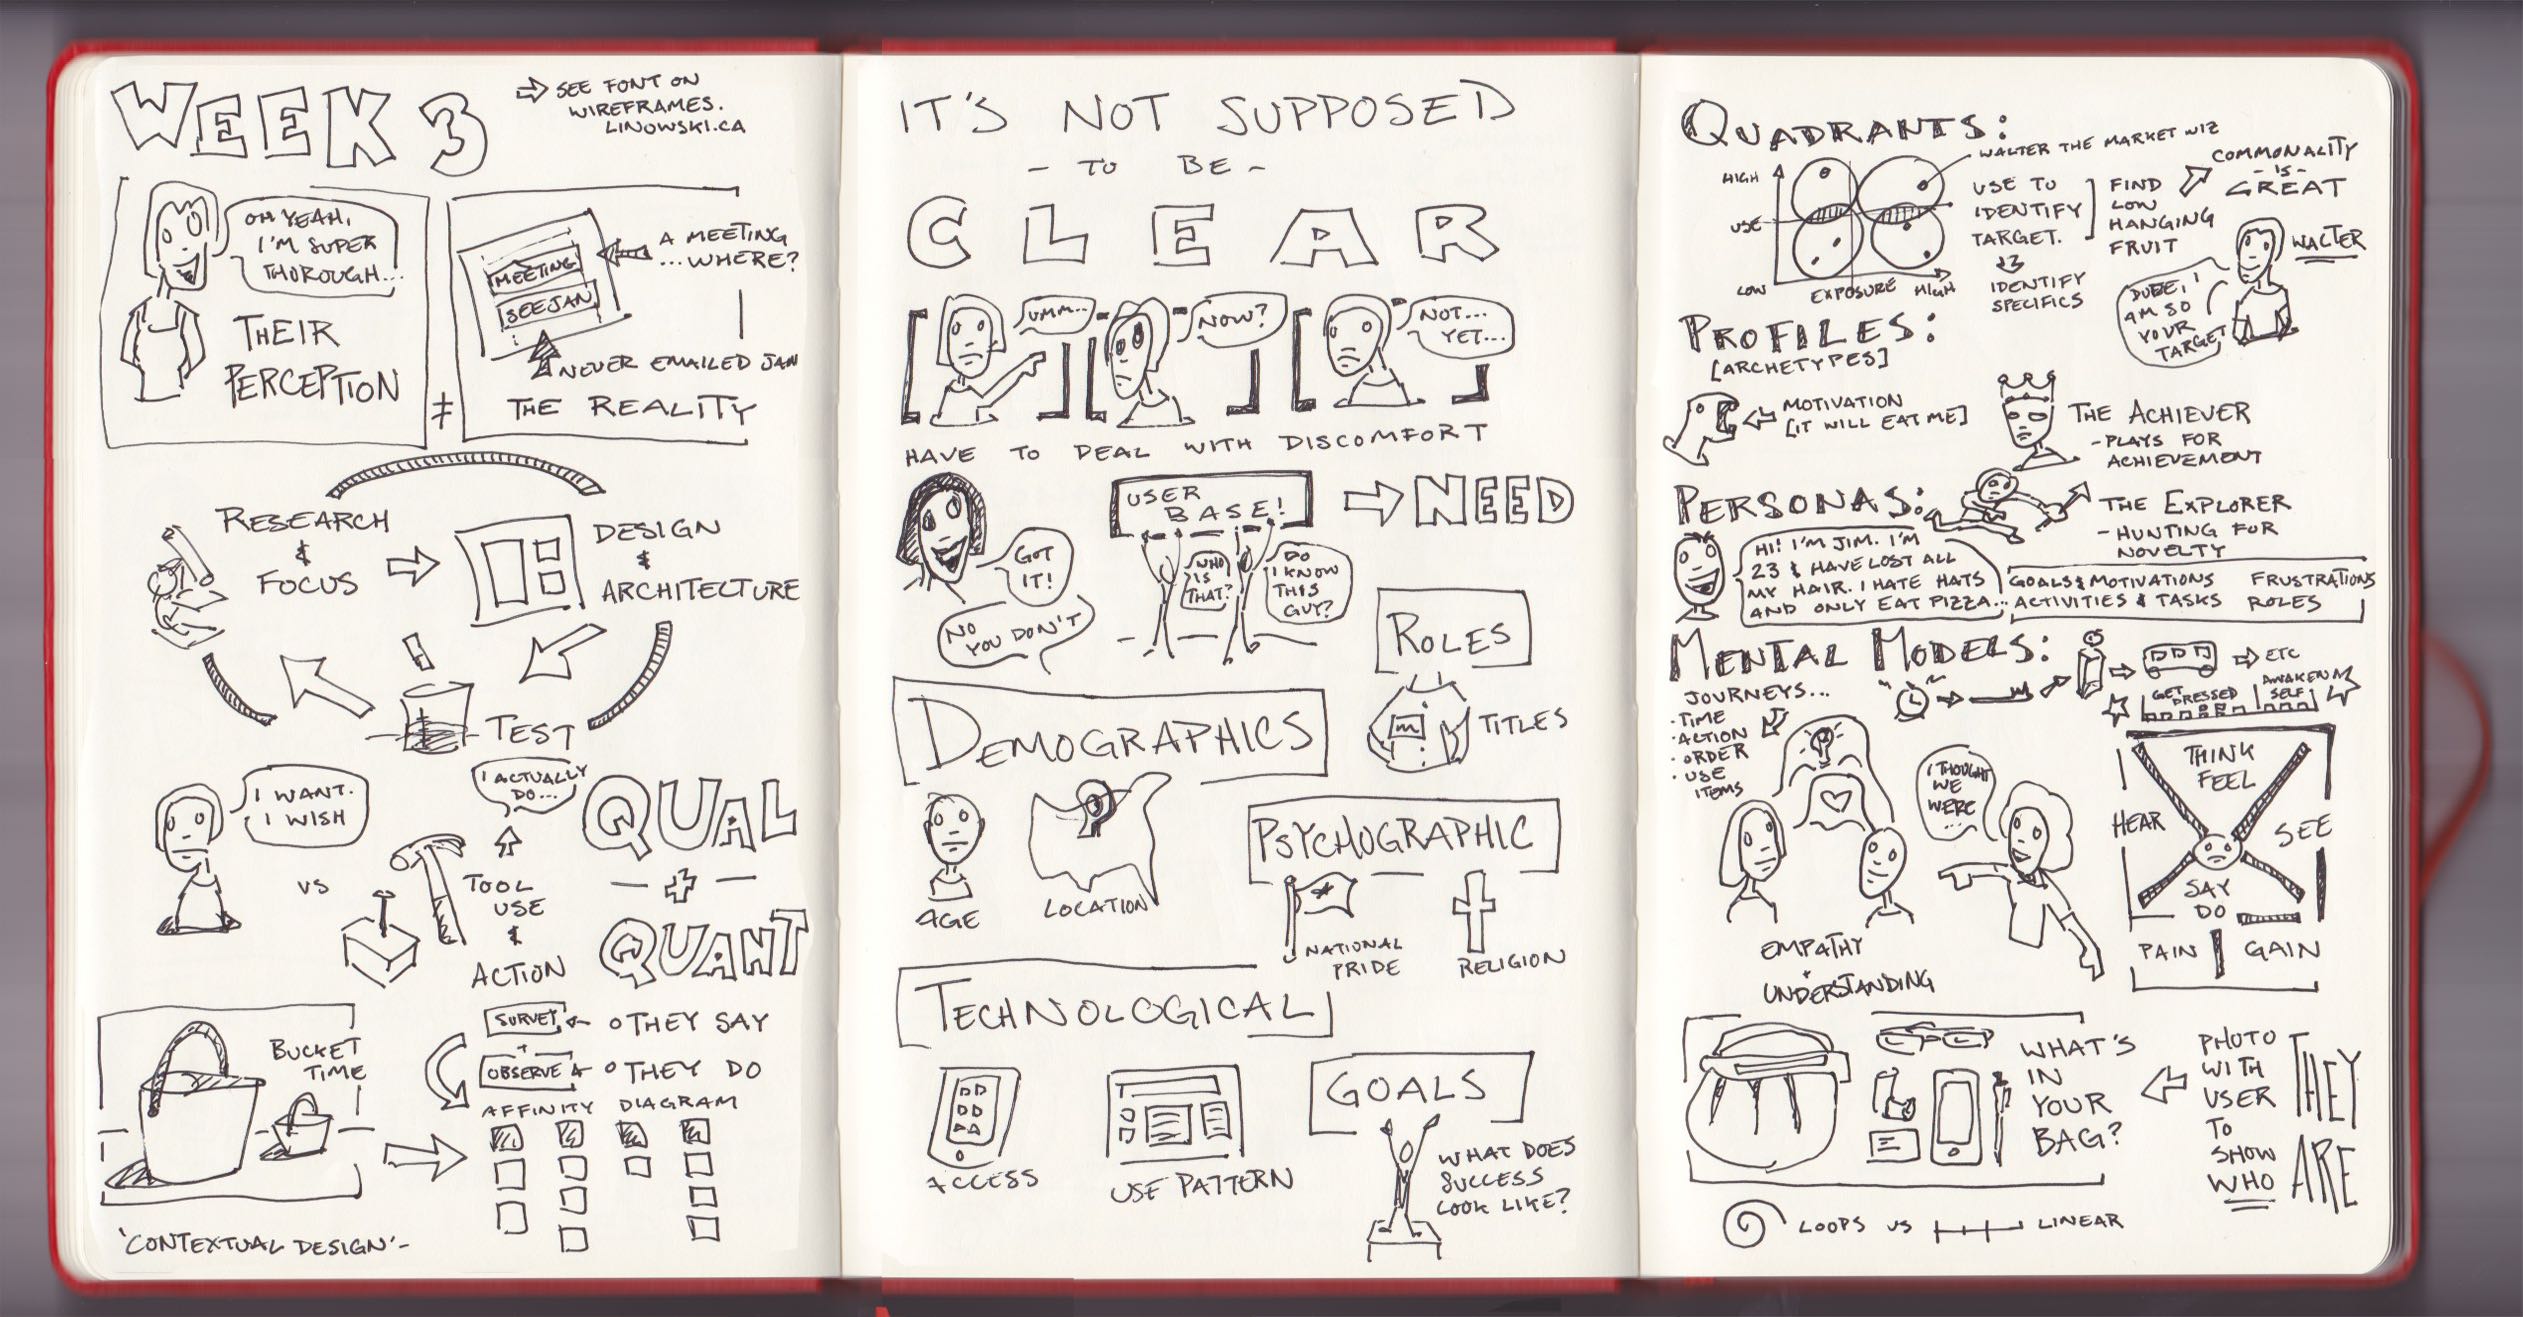 WEEK 3
SEE FONT ON
WIREFRAMES.
LINOWSKI.CA
OH YEAH,
I'M SUPER
THOROUGH...
THEIR
PERCEPTION
≠
MEETING
SEE JAN
A MEETING
...WHERE?
NEVER EMAILED JAN
THE REALITY
RESEARCH
&
FOCUS
DESIGN
&
ARCHITECTURE
TEST
I WANT.
I WISH
VS
I ACTUALLY
DO...
TOOL
USE
&
ACTION
QUAL
- + -
QUANT
BUCKET
TIME
SURVEY
THEY SAY
+
OBSERVE
THEY DO
AFFINITY DIAGRAM
'CONTEXTUAL DESIGN'-
IT'S NOT SUPPOSED
- TO BE -
CLEAR
UMM...
NOW?
NOT...
YET...
HAVE TO DEAL WITH DISCOMFORT
GOT
IT!
NO
YOU DON'T
USER
BASE!
WHO
IS
THAT?
DO
I KNOW
THIS
GUY?
NEED
ROLES
TITLES
DEMOGRAPHICS
AGE
LOCATION
PSYCHOGRAPHIC
NATIONAL
PRIDE
RELIGION
TECHNOLOGICAL
ACCESS
USE PATTERN
GOALS
WHAT DOES
SUCCESS
LOOK LIKE?
QUADRANTS:
WALTER THE MARKET WIZ
HIGH
USE
LOW
EXPOSURE HIGH
USE TO
IDENTIFY
TARGET.
IDENTIFY
SPECIFICS
FIND
LOW
HANGING
FRUIT
COMMONALITY
- IS -
GREAT
WALTER
DUDE, I
AM SO
YOUR
TARGET
PROFILES:
[ARCHETYPES]
MOTIVATION
[IT WILL EAT ME]
THE ACHIEVER
- PLAYS FOR
ACHIEVEMENT
PERSONAS:
THE EXPLORER
- HUNTING FOR
NOVELTY
HI! I'M JIM. I'M
23 & HAVE LOST ALL
MY HAIR. I HATE HATS
AND ONLY EAT PIZZA...
GOALS & MOTIVATIONS FRUSTRATIONS
ACTIVITIES & TASKS ROLES
MENTAL MODELS:
JOURNEYS...
· TIME
· ACTION
· ORDER
· USE
ITEMS
ETC
GET
DRESSED
AWAKEN
SELF
I THOUGHT
WE
WERE
...
EMPATHY
+
UNDERSTANDING
THINK
FEEL
HEAR
SEE
SAY
DO
PAIN
GAIN
WHAT'S
IN
YOUR
BAG?
PHOTO
WITH
USER
TO
SHOW
WHO
THEY
ARE
LOOPS VS LINEAR